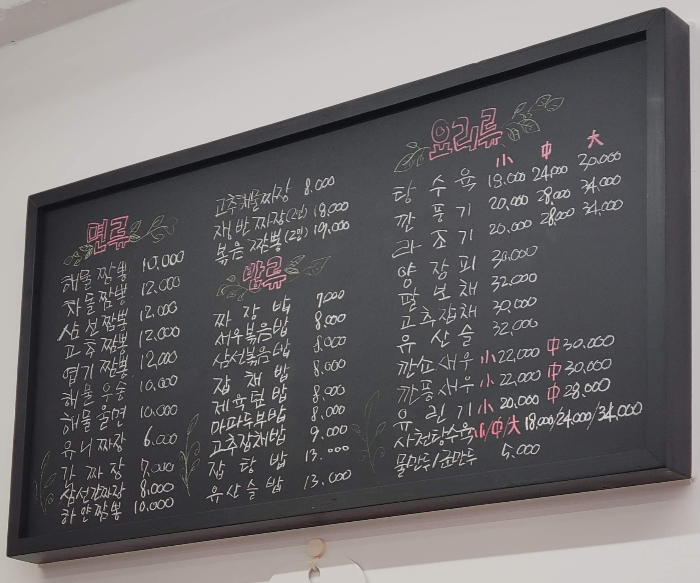 면류
해물짬뽕 10,000
차돌짬뽕 12,000
삼선짬뽕 12,000
고추짬뽕 12,000
엽기짬뽕 12,000
해물우동 10,000
해물울면 10,000
유니짜장 6,000
간짜장 7,000
삼선간짜장 8,000
하얀짬뽕 10,000
고추해물짜장 8,000
쟁반짜장(2인) 18,000
볶음짬뽕(2인) 19,000
밥류
짜장밥 7,000
새우볶음밥 8,000
삼선볶음밥 8,000
잡채밥 8,000
제육덮밥 8,000
마파두부밥 8,000
고추잡채밥 9,000
잡탕밥 13.000
유산슬밥 13.000
요리류
小 中 大
탕수육 18,000 24,000 30,000
깐풍기 20,000 28,000 34,000
라조기 20,000 28,000 34,000
양장피 30,000
팔보채 32,000
고추잡채 30,000
유산슬 32,000
깐쇼새우 小 22,000 中 30,000
깐풍새우 小 22,000 中 30,000
유린기 小 20,000 中 28,000
사천탕수육 小/中/大 18,000/24,000/34,000
물만두/군만두 5,000